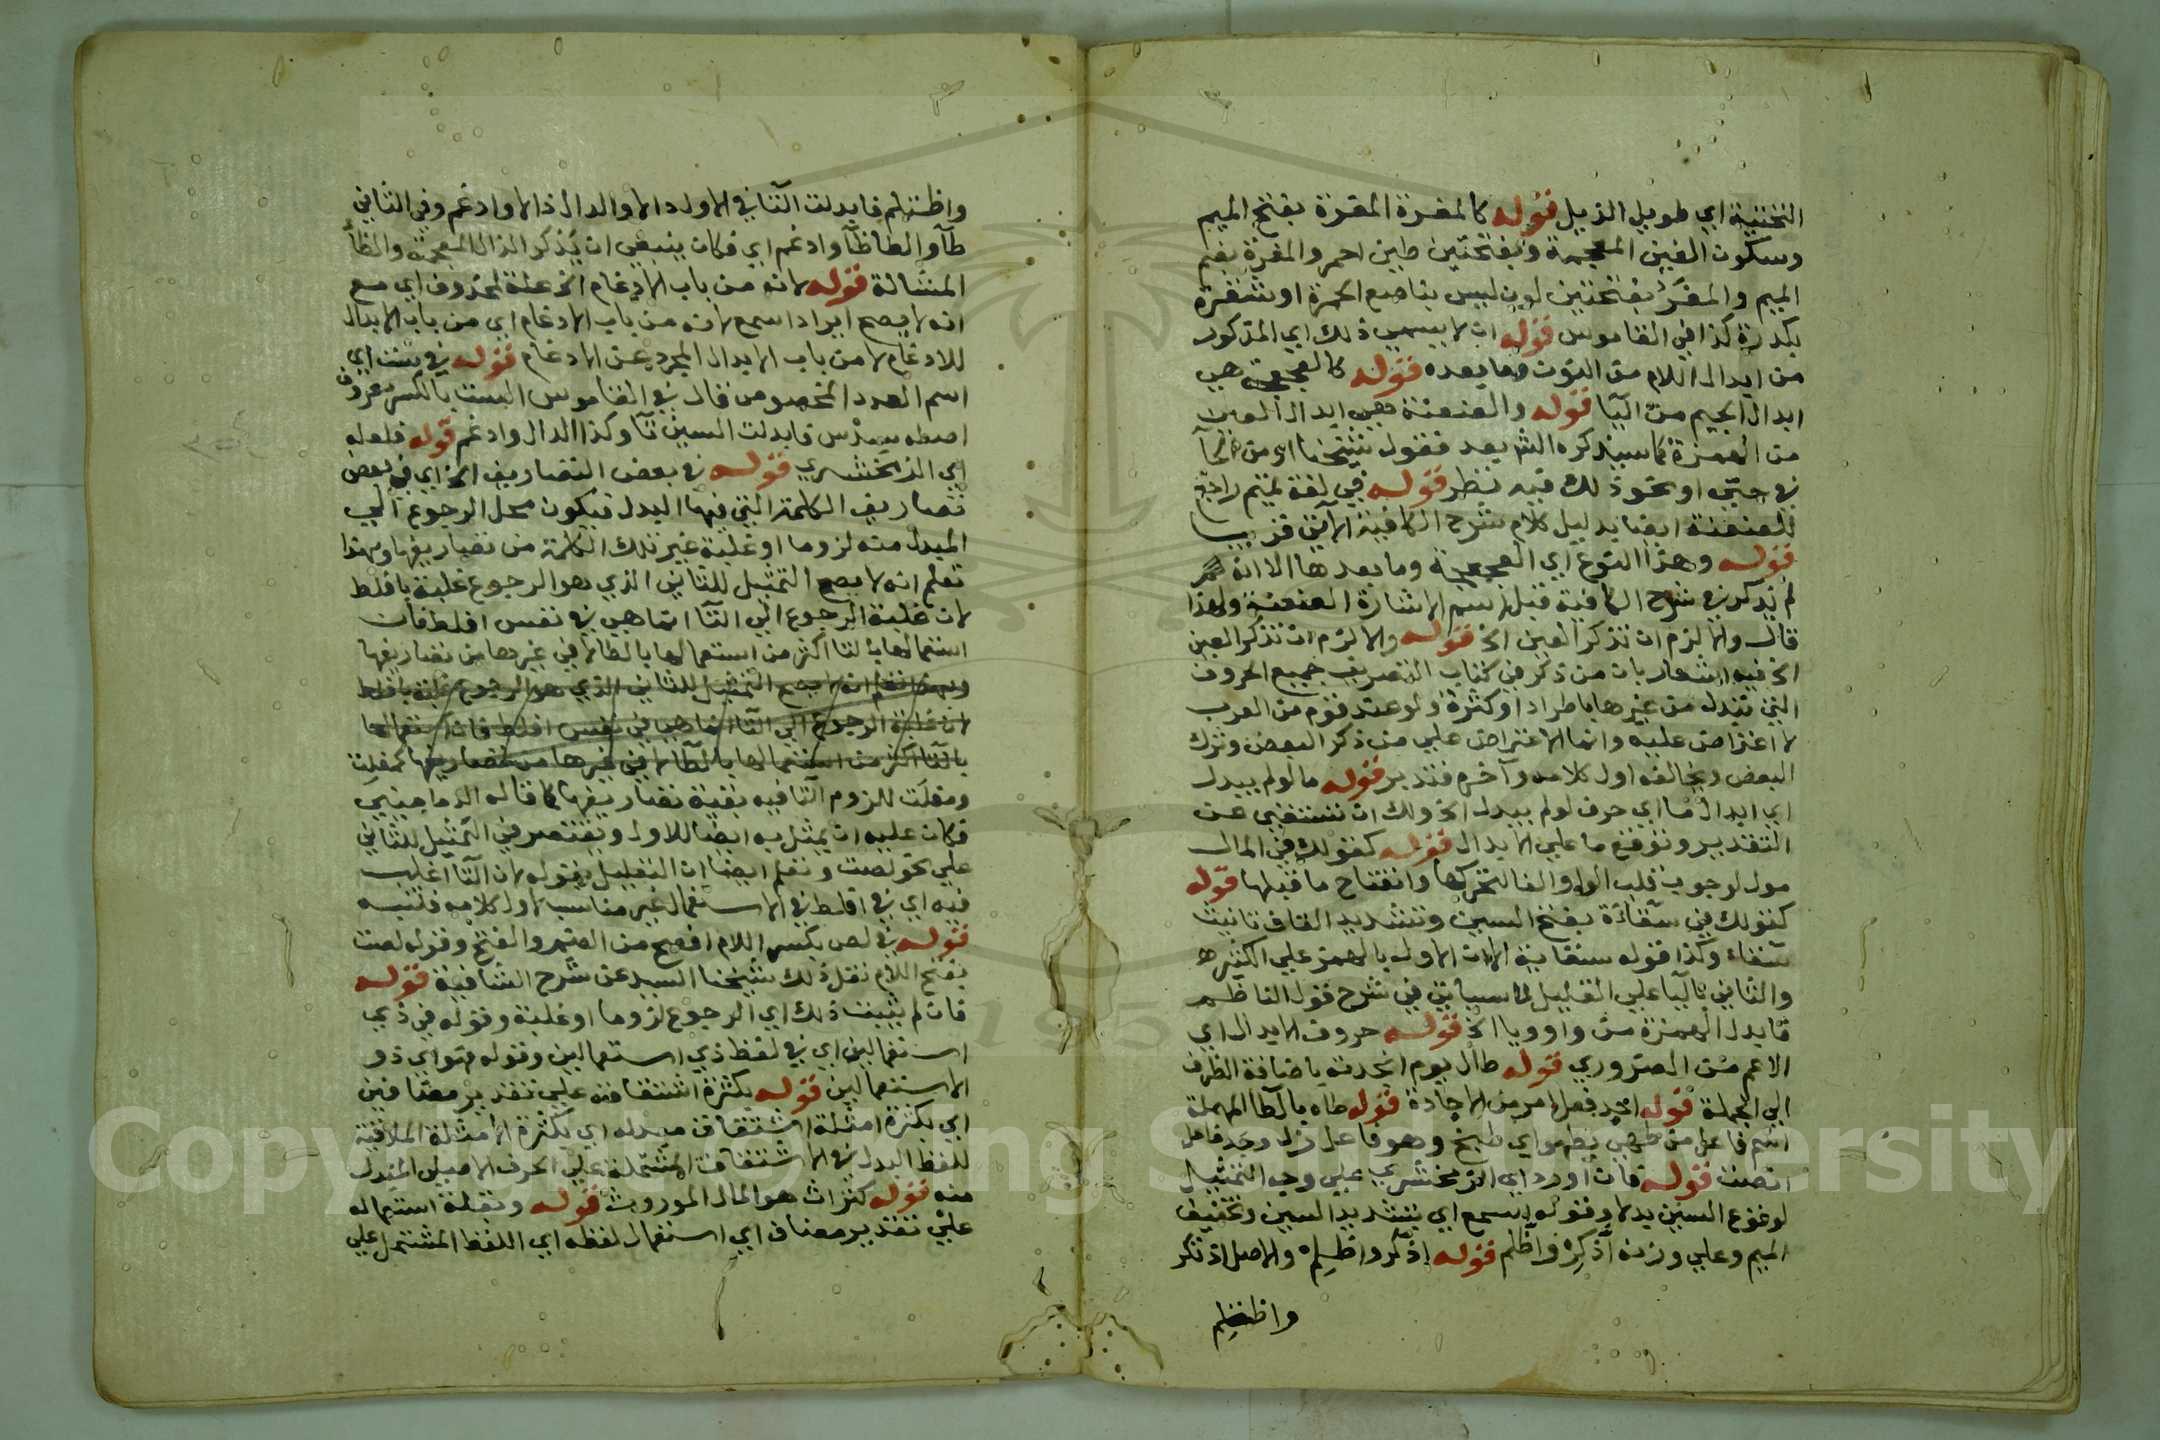 التحتية اي طويل الذيل قوله كالمغرة المغرة بفتح الميم
وسكون الغين المعجمة وبفتحتين طين احمر والمغرة بضم
الميم والمغر بفتحتين لون ليس بناصع الحمرة او شقرة
بكدرة كذا في القاموس قوله ان لا يسمي ذلك اي المذكور
من ابدال اللام من النون وما بعده قوله كالعجعجة هي
ابدال الجيم من اليا قوله والعنعنة وهي ابدال العين
من الهمزة كما سيذكره الش بعد فقول شيخنا اي من
في حتي او نحو ذلك فيه نظر قوله في لغة تميم راجع
للعنعنة ايضا بدليل كلام شرح الكافية الاتي قريبا
قوله وهذا النوع اي العجعجة وما بعدها الا انه
لم يذكر في شرح الكافية قبل اسم الاشارة العنعنة ولهذا
قال والا لزم ان تذكر العين الخ قوله والا لزم ان تذكر العين
الخ فيه اشعار بان من ذكر في كتاب التصريف جميع الحروف
التي تبدل من غيرها باطراد او كثرة ولو عند قوم من العرب
لا اعتراض عليه وانما الاعتراض علي من ذكر البعض وترك
البعض وبخالفه اول كلامه وآخره فتدبر قوله ما لو لم يبدل
اي ابدال ما اي حرف لو لم يبدل الخ ولك ان تستغني عن
التقدير وتوقع ما علي الابدال قوله كقولك في المال
مول لوجوب قلب الواو الفا لتحركها وانفتاح ما قبلها قوله
كقولك في سقاءة بفتح السين وتشديد القاف تانيث
سقاء وكذا قوله سقاية الا ان الاول بالهمز علي الكثير
والثاني باليا علي القليل لما سياتي في شرح قول الناظم
فابدل الهمزة من واو ويا الخ قوله حروف الابدال اي
الاعم من الضروري قوله طال يوم انجدته باضافة الظرف
الي الجملة قوله انجد فعل امر من الاجادة قوله طاه بالطا المهملة
اسم فاعل من طهي يطهو اي طبخ وهو فاعل زل وجد فاعل
انصت قوله فان اورد اي الزمخشري علي وجه التمثيل
لوقوع السين بدلا وقوله اسمع اي بتشديد السين وتخفيف
الميم وعلي وزنه اذكر واظلم قوله اذكر واظلم والاصل اذتكر
واظتلم
واظتلم فابدلت التا في الاول دالا والدال ذالا وادغم وفي الثاني
طا والطا ظا وادغم اي فكان ينبغي ان يذكر الذال المعجمة والظا
المشالة قوله لانه من باب الادغام الخ علة لمحذوف اي مع
انه لا يصح ايراد اسمع لانه من باب الادغام اي من باب الابدال
للادغام لا من باب الابدال المجرد عن الادغام قوله في ست اي
اسم العدد المخصوص قال في القاموس الست بالكسر معروف
اصله سدس فابدلت السين تا وكذا الدال وادغم قوله فلعله
اي الزمخشري قوله في بعض التصاريف الخ اي في بعض
تصاريف الكلمة التي فيها البدل فيكون محل الرجوع الي
المبدل منه لزوما او غلبة غير تلك الكلمة من تصاريفها وبهذا
تعلم انه لا يصح التمثيل للثاني الذي هو الرجوع غلبة بافلط
لان غلبة الرجوع الي التا انما هي في نفس افلط فان
استعمالها بالتا اكثر من استعمالها بالطا لا في غيرها من تصاريفها
وبهذا تعلم انه لا يصح التمثيل للثاني الذي هو الرجوع غلبة بافلط
لان غلبة الرجوع الي التا انما هي في نفس افلط فان استعمالها
بالتا اكثر من استعمالها بالطا لا في غيرها من تصاريفها كمفلت
ومفلت للزوم التا فيه بقية تصاريفها كما قاله الدماميني
فكان عليه ان يمثل به ايضا للاول ويقتصر في التمثيل للثاني
علي نحو لصت وتعلم ايضا ان التعليل بقوله لان التا اغلب
فيه اي في افلط في الاستعمال غير مناسب لاول كلامه فتنبه
قوله في لص بكسر اللام افصح من الضم والفتح وقوله لصت
بفتح اللام نقل ذلك شيخنا السيد عن شرح الشافية قوله
فان لم يثبت ذلك اي الرجوع لزوما او غلبة وقوله في ذي
استعمالين اي في لفظ ذي استعمالين وقوله فهو اي ذو
الاستعمالين قوله بكثرة اشتقاقه علي تقدير مضافين
اي بكثرة امثلة اشتقاق مبدله اي بكثرة الامثلة الملاقية
للفظ البدل في الاشتقاق المشتملة علي الحرف الاصلي المبدل
منه قوله كتراث هو المال الموروث قوله وبقلة استعماله
علي تقدير مضاف اي استعمال لفظه اي اللفظ المشتمل علي